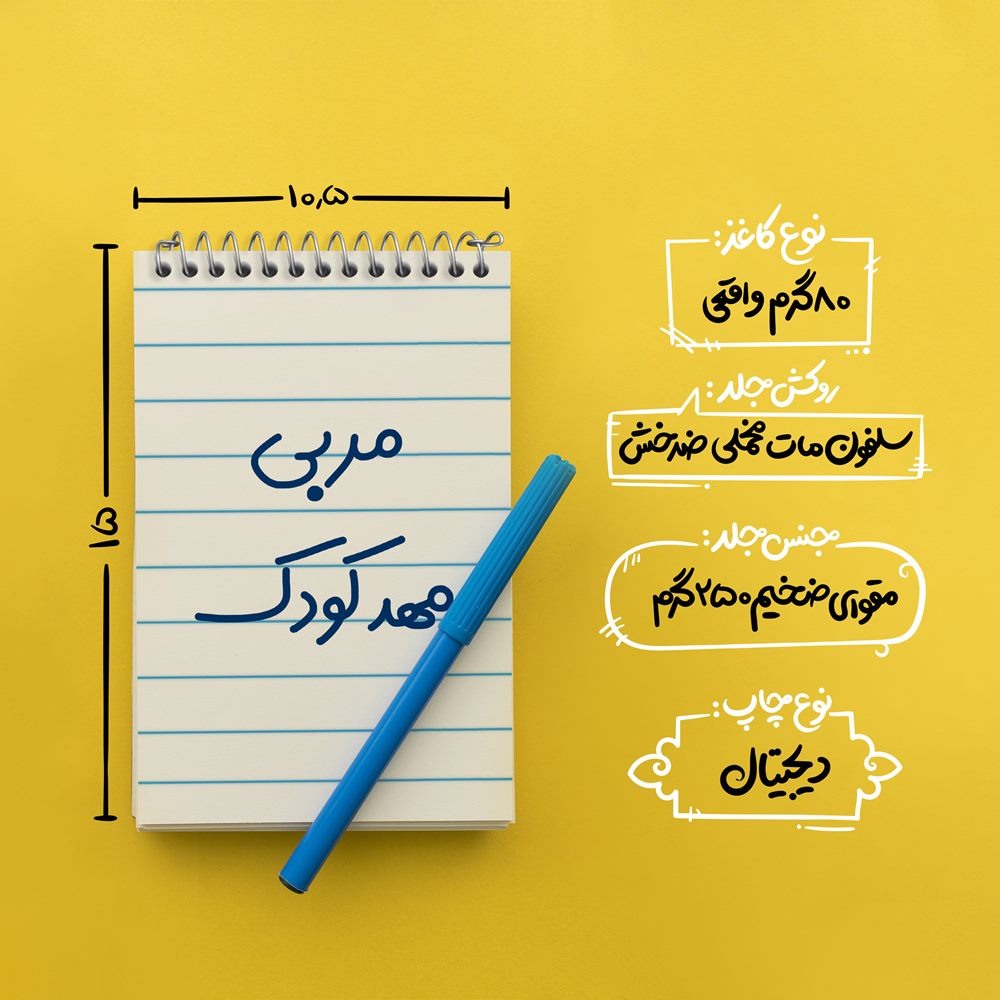 ۱۰٫۵
۱۵
مربی
مهد کودک
نوع کاغذ:
۸۰ گرم واقعی
روکش جلد:
سلفون مات مخملی ضدخش
جنس جلد:
مقوای ضخیم ۲۵۰ گرم
نوع چاپ:
دیجیتال